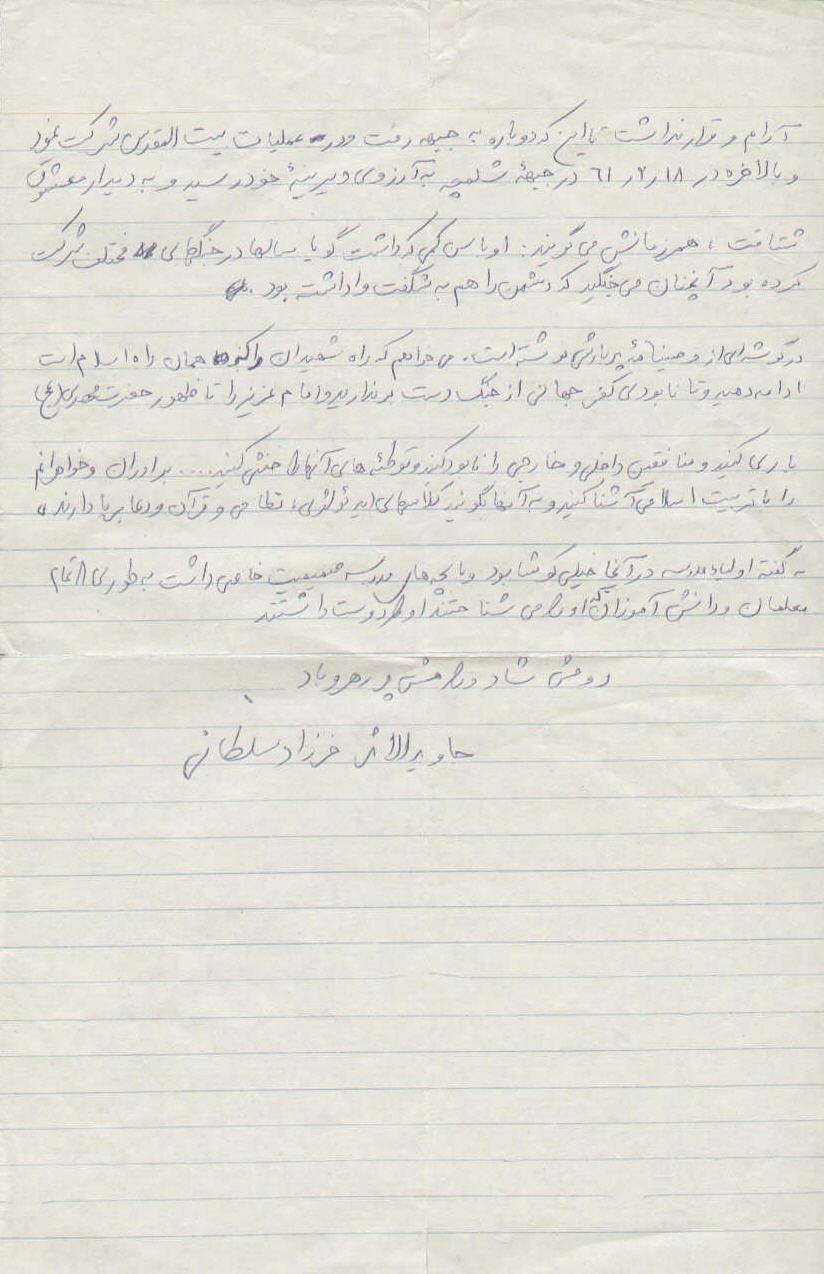 آرام و قرار نداشت تا این که دوباره به جبهه رفت و در عملیات بیت المقدس شرکت نمود
و بالاخره در ۱۸ر۲ر۶۱ در جبههٔ شلمچه به آرزوی دیرینهٔ خود رسید و به دیدار معشوق
شتافت ، همرزمانش می گویند: او با سن کمی که داشت گویا سالها در جنگهای مختلف شرکت
کرده بود آنچنان می جنگید که دشمن را هم به شگفت واداشته بود .
در گوشه ای از وصینامهٔ پربارش نوشته است. می خواهم که راه شهیدان را که همان راه اسلام است
ادامه دهید و تا نابودی کفر جهانی از جنگ دست برندارید و امام عزیز را تا ظهور حضرت مهدی (عج)
یاری کنید و منافقین داخلی و خارجی را نابود کنید و توطئه های آنها را خنثی کنید.... برادران و خواهرانم
را با تربیت اسلامی آشنا کنید و به آنها بگوئید کلاسهای ایدئولوژی، نظامی و قرآن و دعا برپا دارند .
به گفته اولیاء مدرسه در آنجا خیلی کوشا بود و با بچه های مدرسه صمیمیت خاصی داشت به طوری که تمام
معلمان و دانش آموزان که او را می شناختند او را دوست داشتند
روحش شاد و راهش پر رهرو باد
جاوید الاثر فرزاد سلطانی